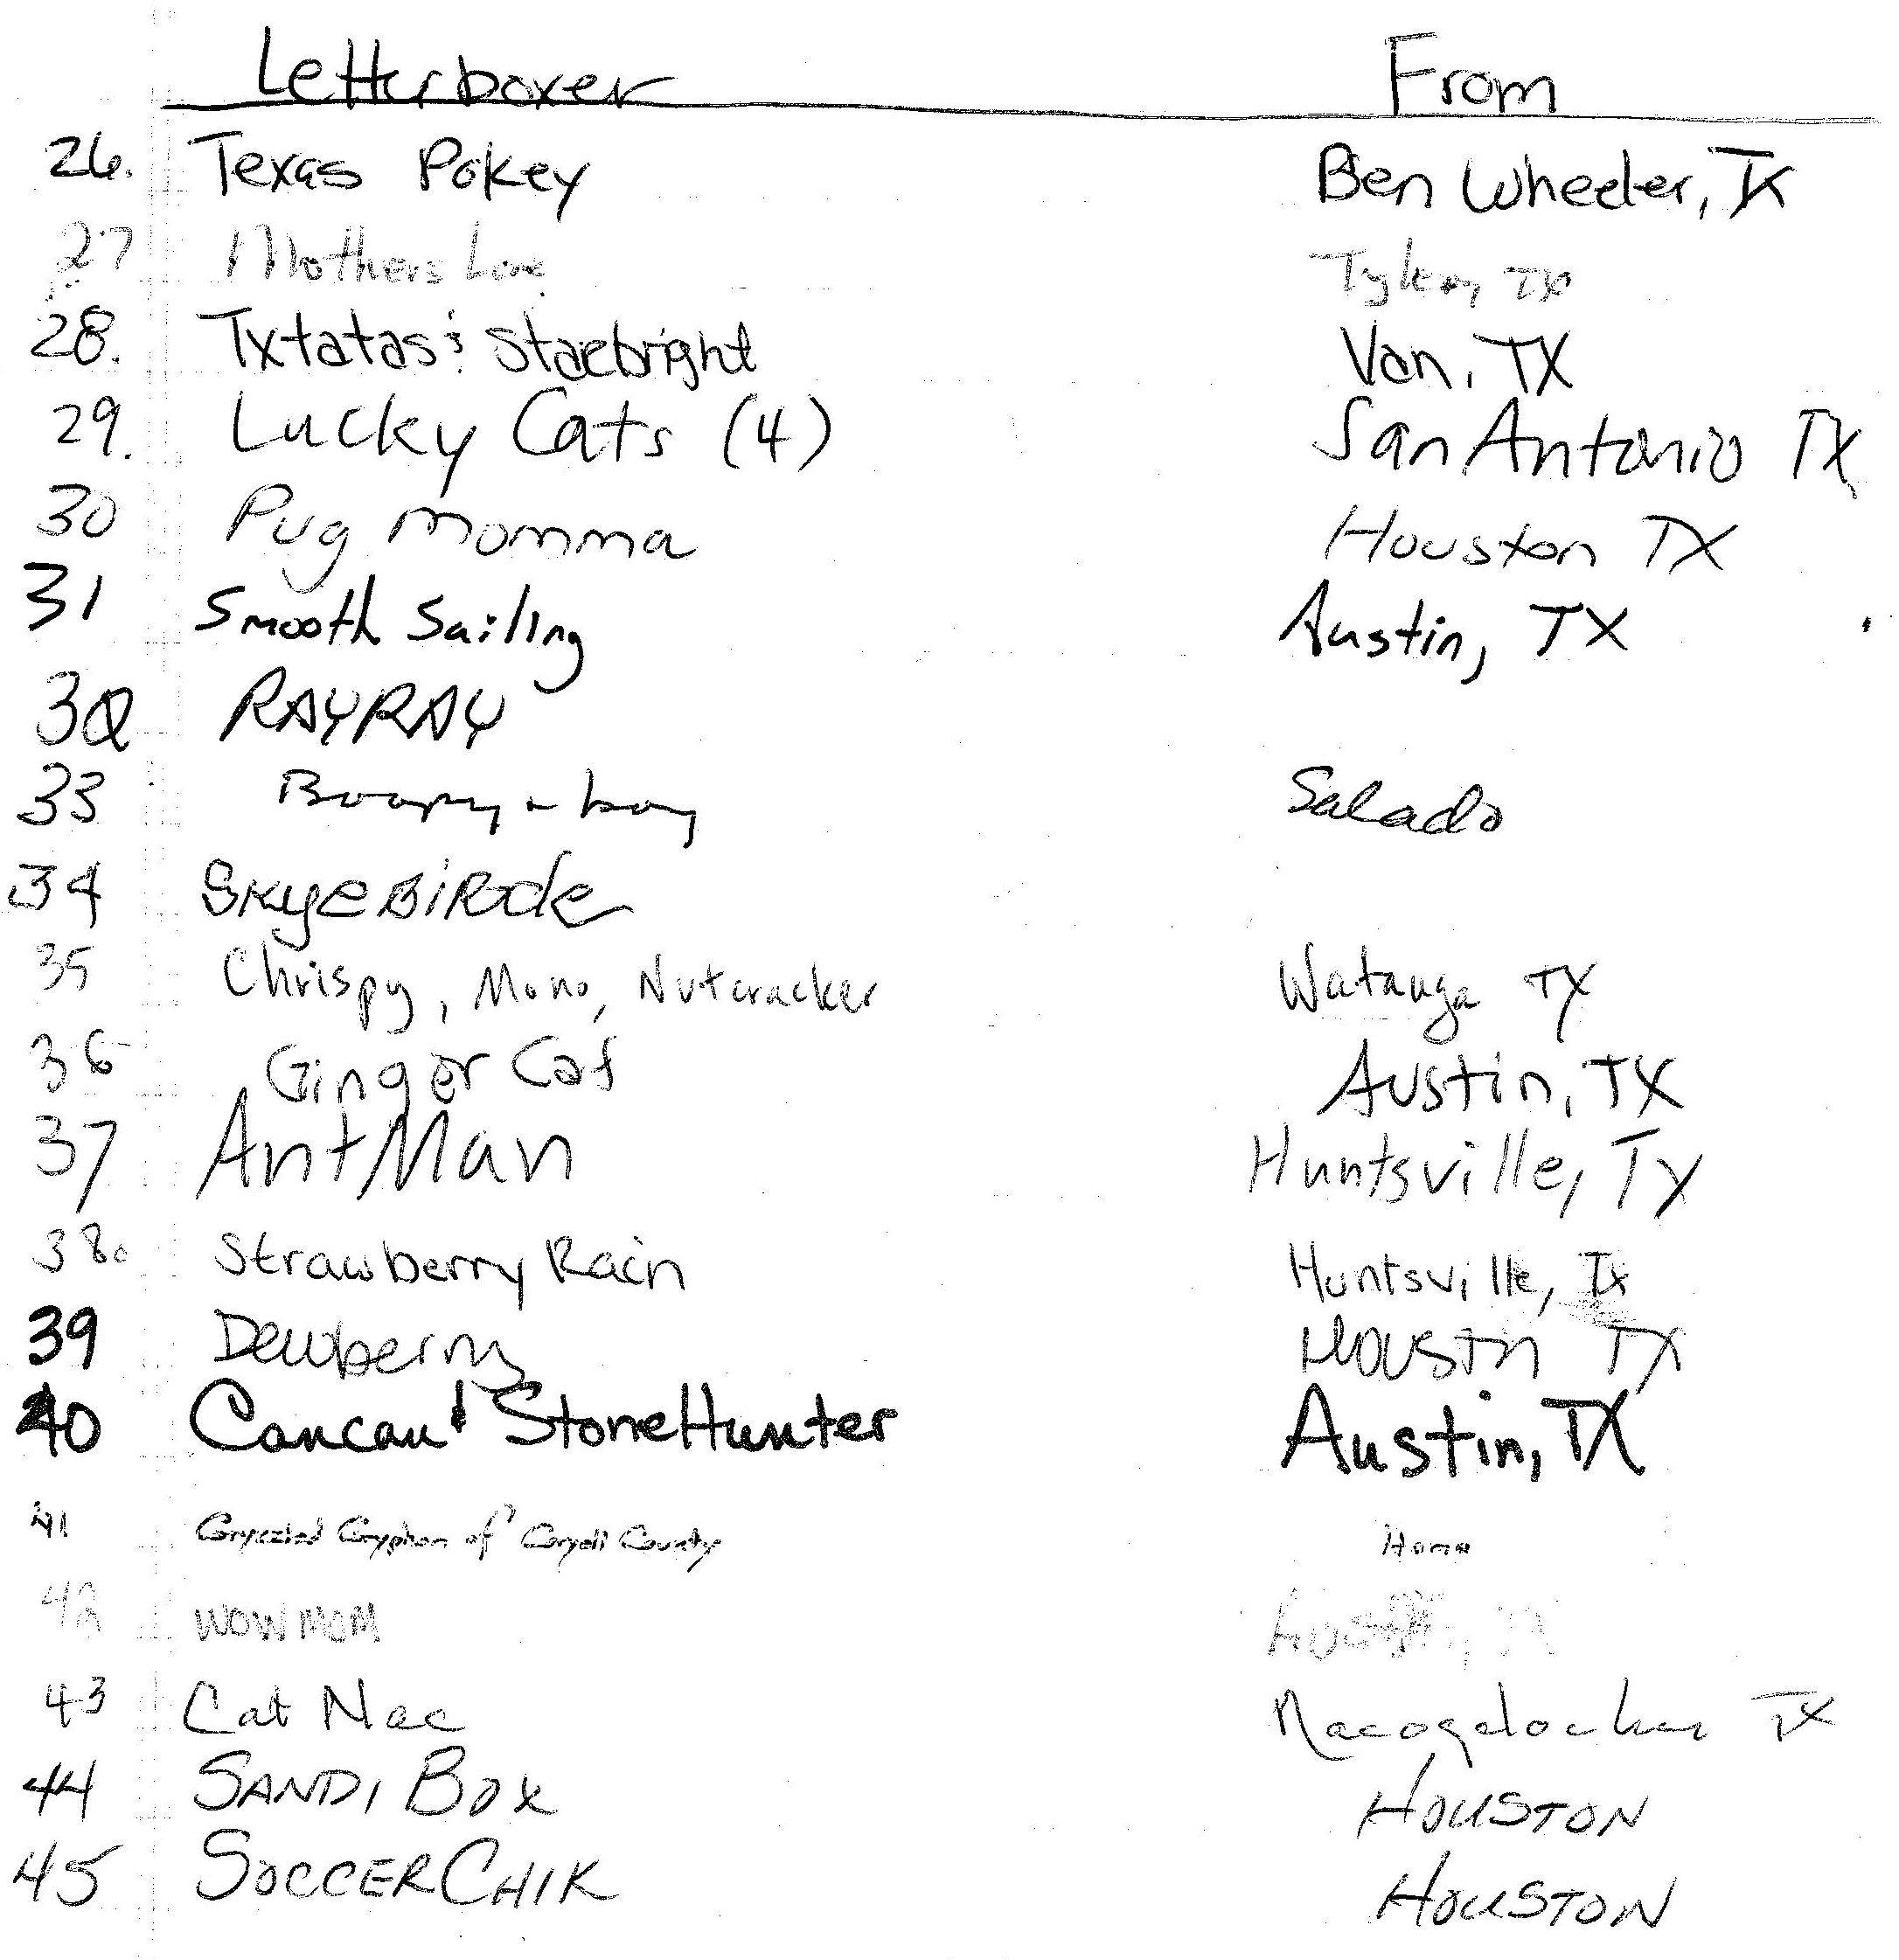 Letterboxer From
26. Texas Pokey Ben Wheeler, TX
27 Mothers Love Tyler, TX
28. Txtatas & Starbright Van, TX
29. Lucky Cats (4) San Antonio TX
30 Pug Momma Houston TX
31 Smooth Sailing Austin, TX
32 RAYRAY
33 Salado
34 SKYEBIRDE
35 Chrispy, Mono, Nutcracker Watauga TX
36 Ginger Cat Austin, TX
37 AntMan Huntsville, TX
38. Strawberry Rain Huntsville, Tx
39 Dewberry Houston TX
40 Cancan & StoneHunter Austin, TX
41 Gryphon of Coryell County Home
42 WOWMOM Austin, TX
43 Cat Nac Nacogdoches TX
44 SANDI BOX HOUSTON
45 SOCCERCHIK HOUSTON